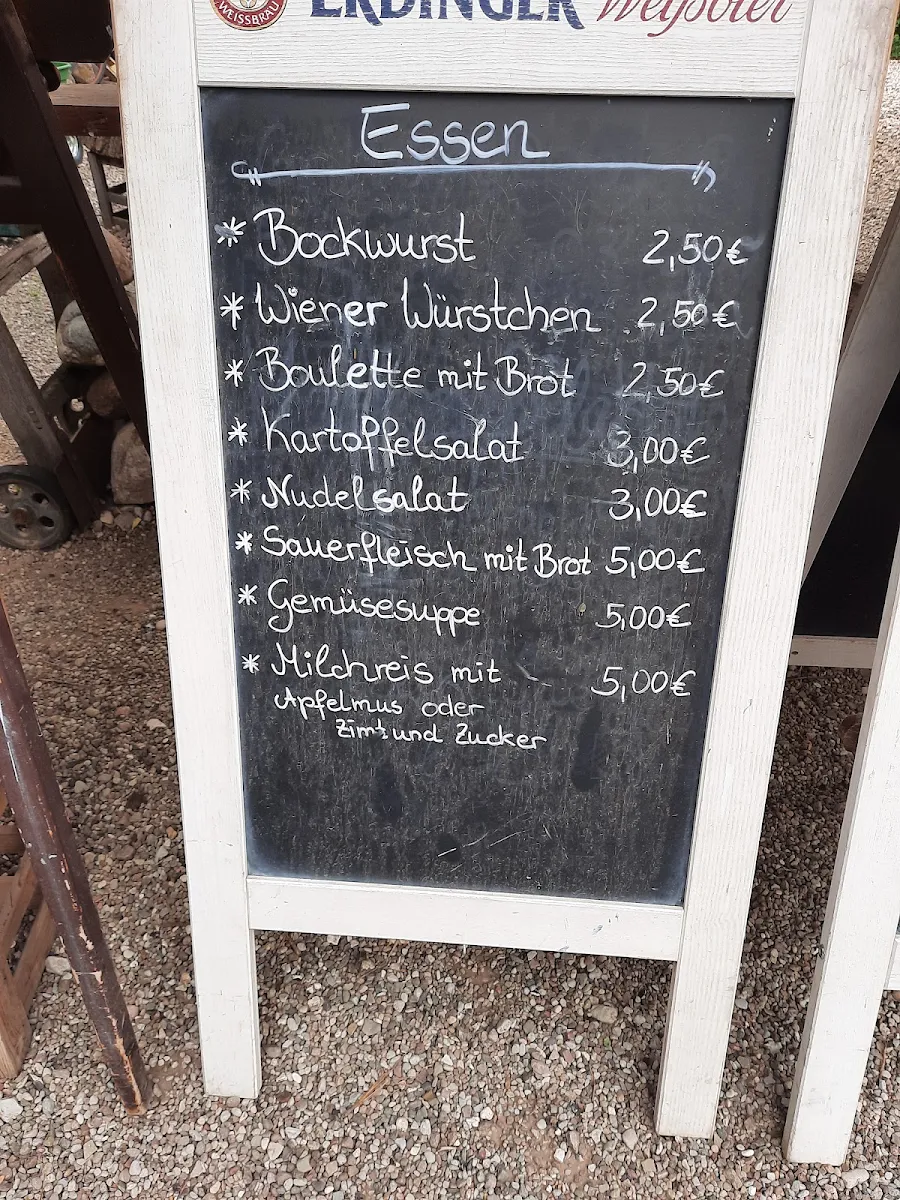 WEISSBRÄU
ERDINGER Weißbier
Essen
* Bockwurst 2,50€
* Wiener Würstchen 2,50€
* Boulette mit Brot 2,50€
* Kartoffelsalat 3,00€
* Nudelsalat 3,00€
* Sauerfleisch mit Brot 5,00€
* Gemüsesuppe 5,00€
* Milchreis mit 5,00€
Apfelmus oder
Zimt und Zucker